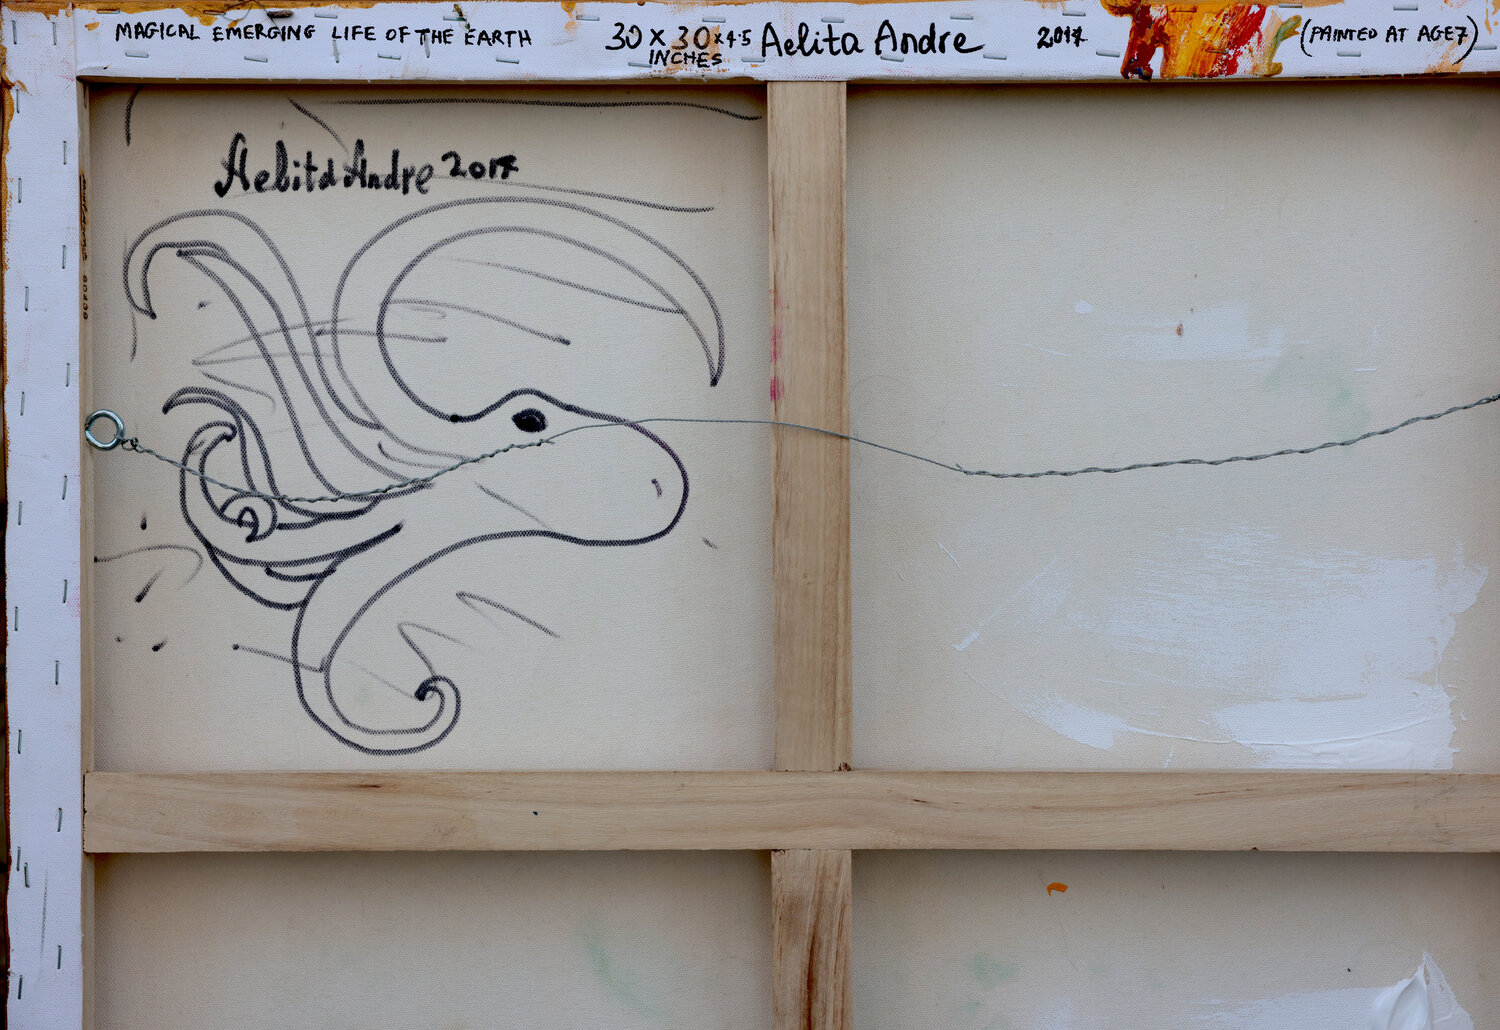 MAGICAL EMERGING LIFE OF THE EARTH 30 x 30 x 4.5 Aelita Andre 2017 (PAINTED AT AGE 7)
INCHES
Aelita Andre 2017